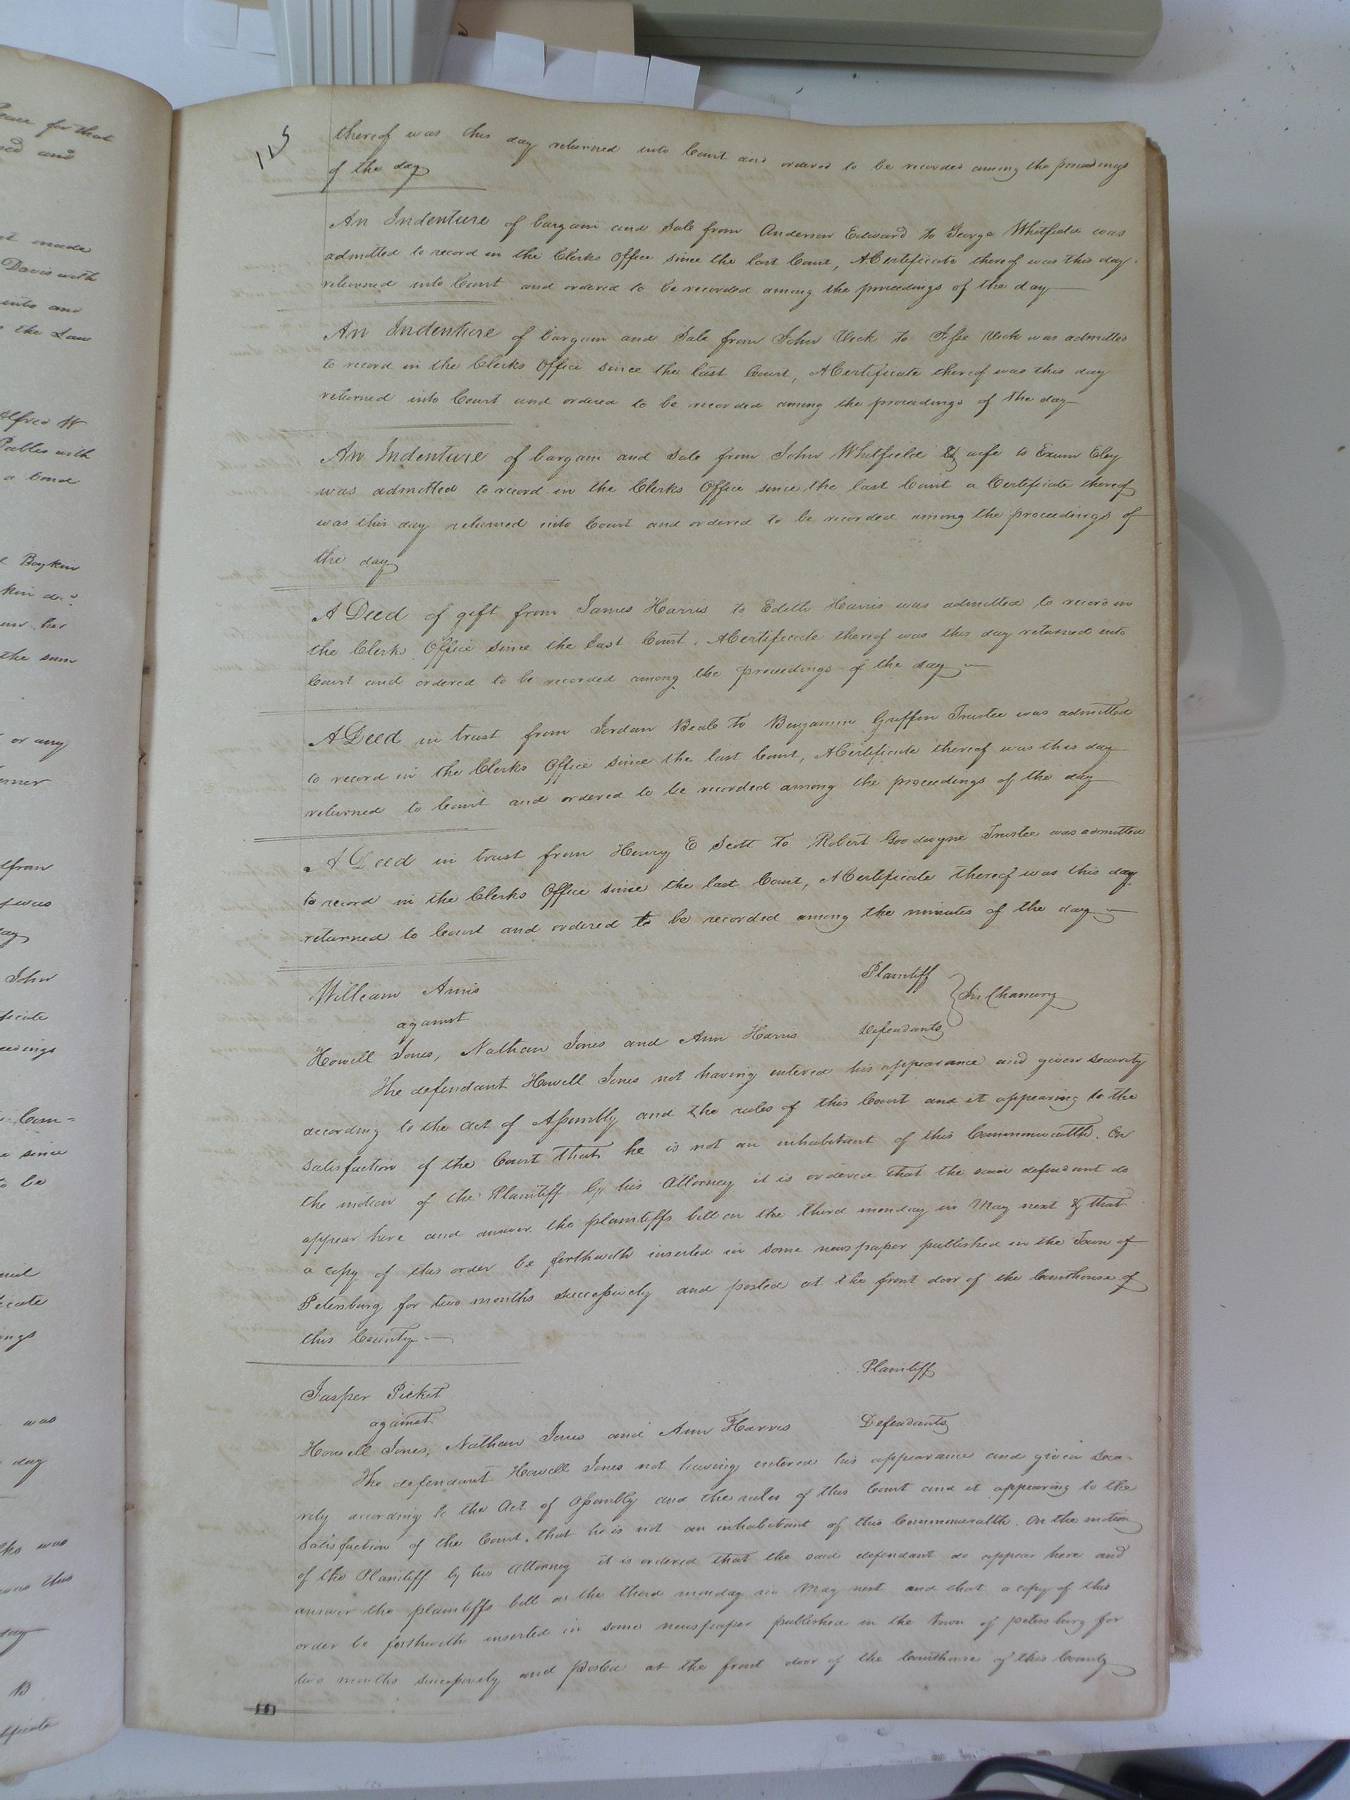 115
thereof was this day returned into Court and ordered to be recorded among the proceedings
of the day
An Indenture of bargain and Sale from Anderson Edward to George Whitfield was
admitted to record in the Clerks Office since the last Court, A Certificate thereof was this day
returned into Court and ordered to be recorded among the proceedings of the day
An Indenture of bargain and Sale from John Vick to Jesse Vick was admitted
to record in the Clerks Office since the last Court, A Certificate thereof was this day
returned into Court and ordered to be recorded among the proceedings of the day
An Indenture of bargain and Sale from John Whitfield & wife to Exum Eley
was admitted to record in the Clerks Office since the last Court a Certificate thereof
was this day returned into Court and ordered to be recorded among the proceedings of
the day
A Deed of gift from James Harris to Edith Harris was admitted to record in
the Clerks Office since the last Court. A Certificate thereof was this day returned into
Court and ordered to be recorded among the proceedings of the day
A Deed in trust from Jordan Beale to Benjamin Griffin Trustee was admitted
to record in the Clerks Office since the last Court, A Certificate thereof was this day
returned to Court and ordered to be recorded among the proceedings of the day
A Deed in trust from Henry E Scott to Robert Goodwyne Trustee was admitted
to record in the Clerks Office since the last Court, A Certificate thereof was this day
returned to Court and ordered to be recorded among the minutes of the day
William Amis Plaintiff
against In Chancery
Howell Jones, Nathan Jones and Ann Harris Defendants
The defendant Howell Jones not having entered his appearance and given security
according to the act of Assembly and the rules of this Court and it appearing to the
satisfaction of the Court that he is not an inhabitant of this Commonwealth. On
the motion of the Plaintiff by his Attorney it is ordered that the said defendant do
appear here and answer the plaintiffs bill on the third monday in May next & that
a copy of this order be forthwith inserted in some newspaper published in the Town of
Petersburg for two months successively and posted at the front door of the Courthouse of
this County
Jasper Picket Plaintiff
against
Howell Jones, Nathan Jones and Ann Harris Defendants
The defendant Howell Jones not having entered his appearance and given secu-
rity according to the Act of Assembly and the rules of this Court and it appearing to the
satisfaction of the Court, that he is not an inhabitant of this Commonwealth. On the motion
of the Plaintiff by his Attorney it is ordered that the said defendant do appear here and
answer the plaintiffs bill on the third monday in May next and that a copy of this
order be forthwith inserted in some newspaper published in the town of petersburg for
two months successively and posted at the front door of the Courthouse of this County